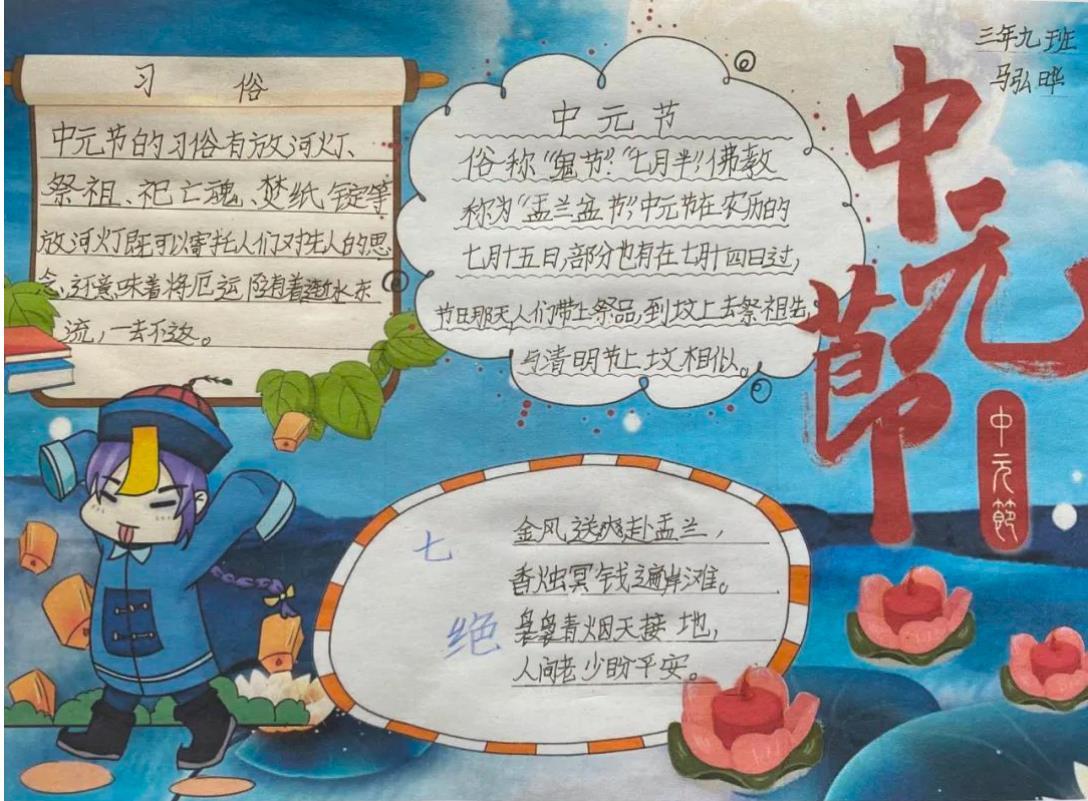 三年九班
马弘晔
中元节
中元節
习俗
中元节的习俗有放河灯、
祭祖、祀亡魂、焚纸锭等
放河灯既可以寄托人们对先人的思
念,还意味着将厄运随着逝水东
流,一去不返。
中元节
俗称“鬼节”“七月半”佛教
称为“盂兰盆节”中元节在农历的
七月十五日,部分也有在七月十四日过,
节日那天,人们带上祭品,到坟上去祭祖先,
与清明节上坟相似。
七绝
金风送爽赴盂兰,
香烛冥钱遍岸滩。
袅袅青烟天接地,
人间老少盼平安。